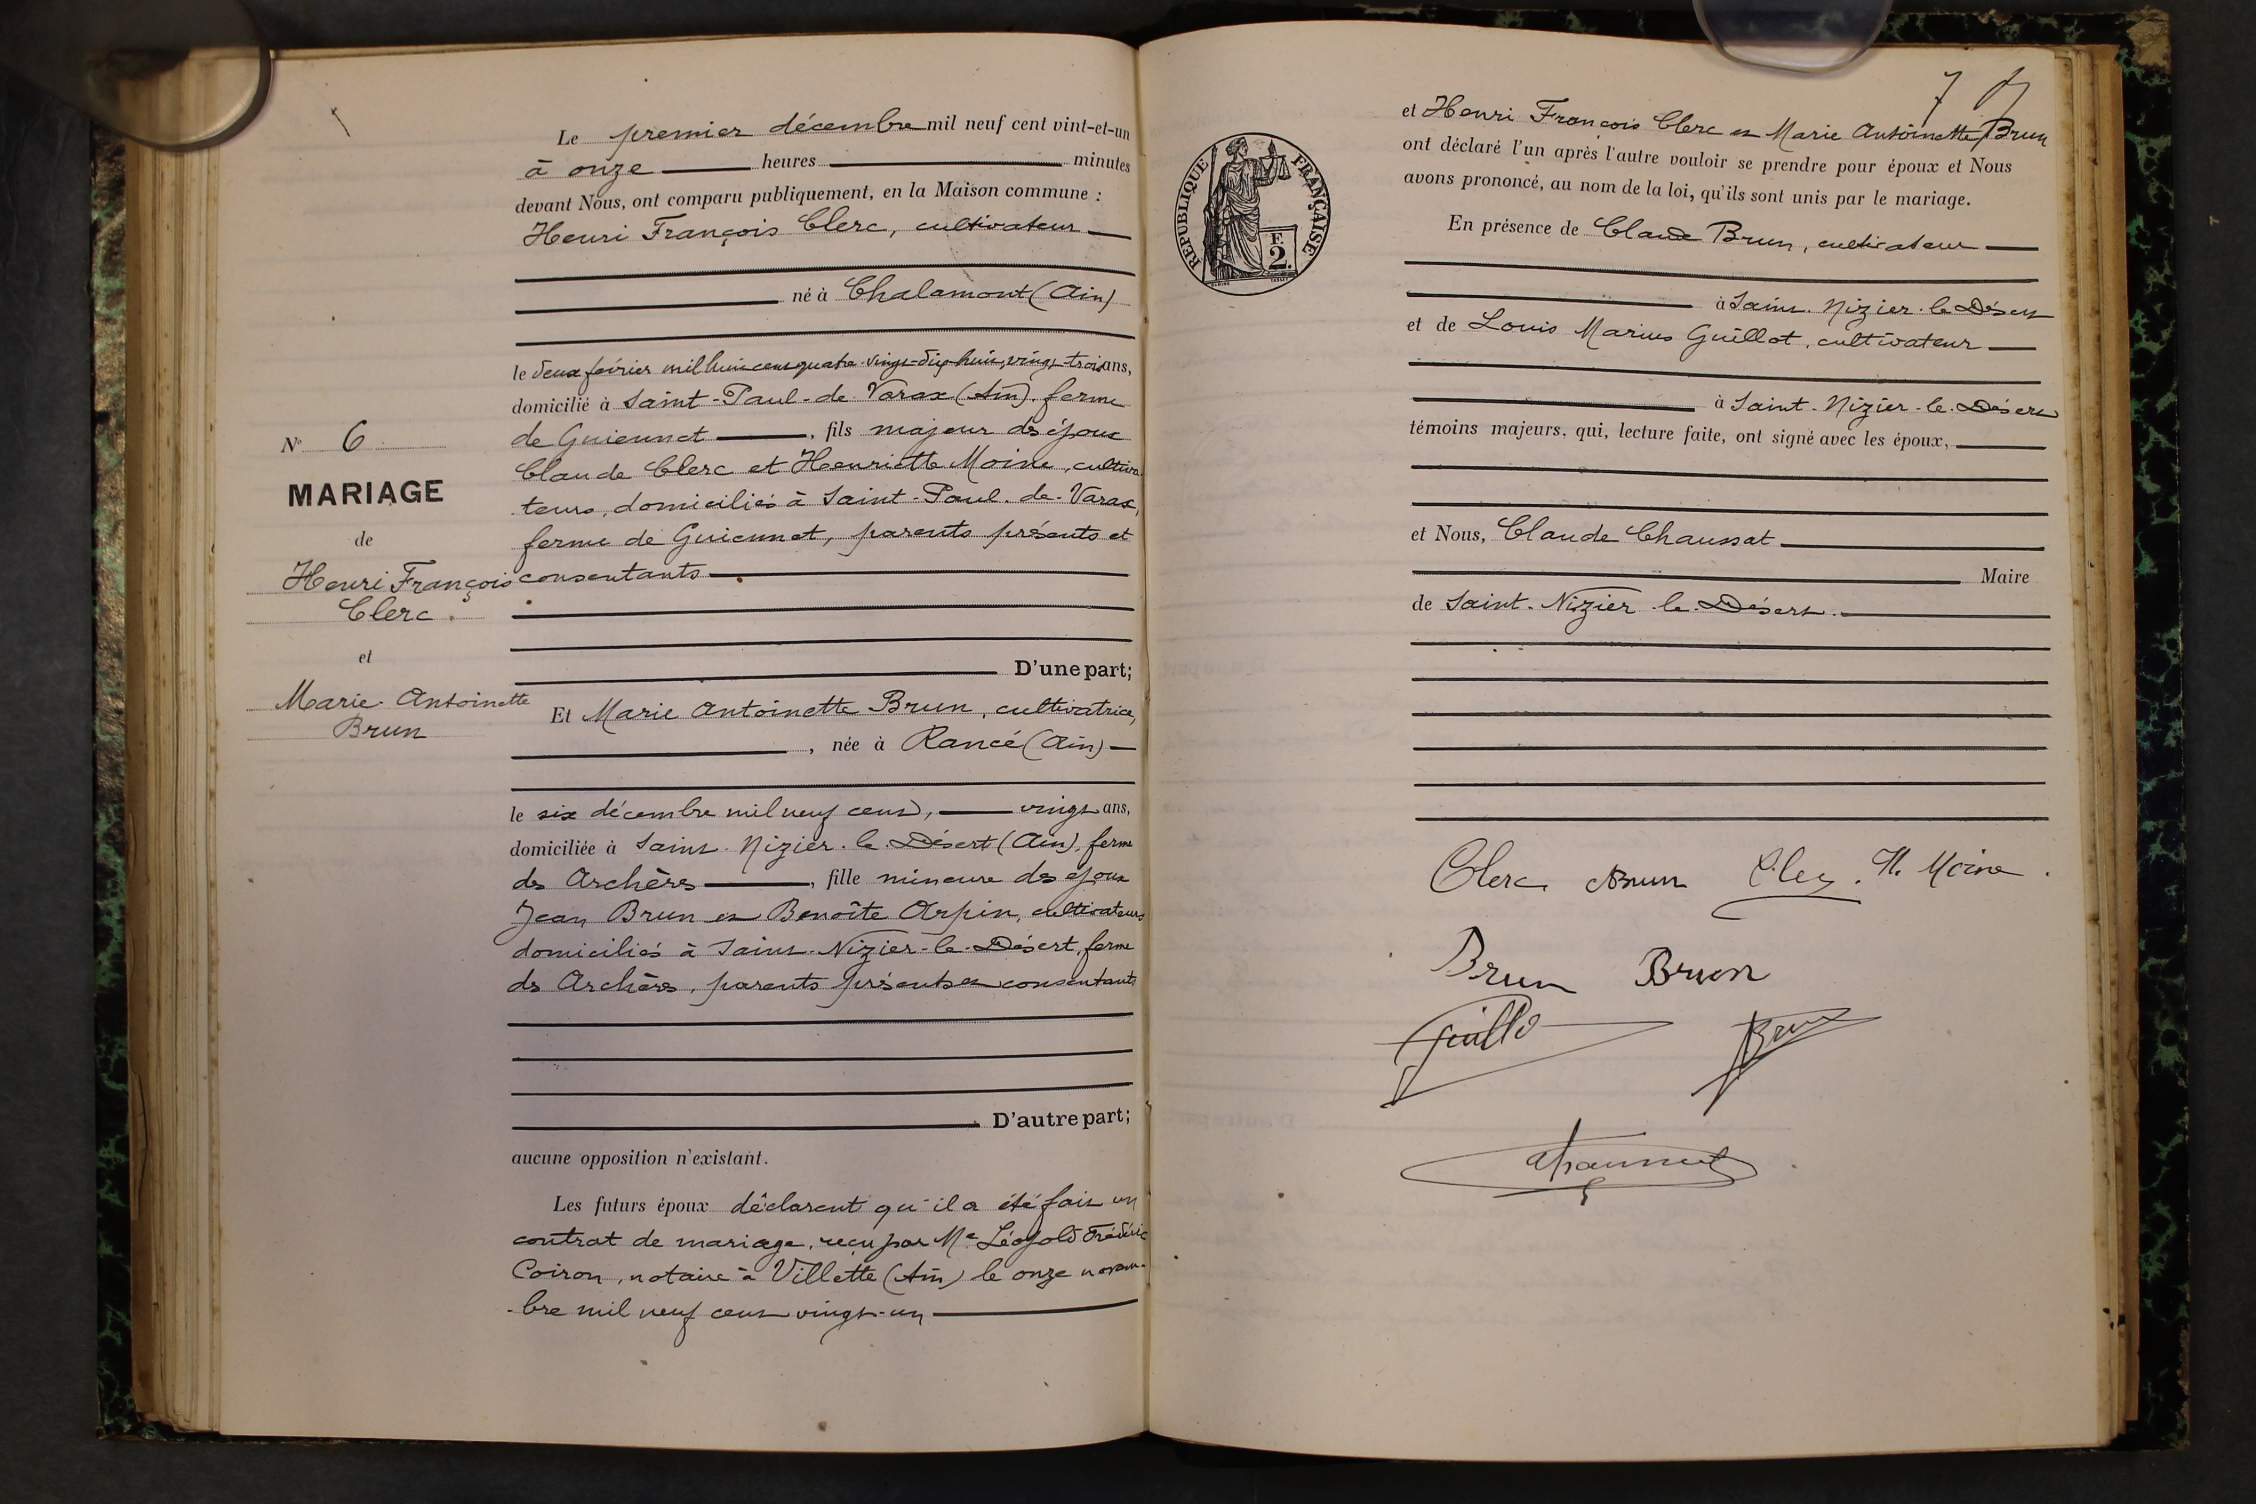 Le premier décembre mil neuf cent vint-et-un
à onze heures minutes
devant Nous, ont comparu publiquement, en la Maison commune :
Henri François Clerc, cultivateur
né à Chalamont (Ain)
le deux février mil huit cent quatre-vingt-dix-huit, vingt-trois ans,
domicilié à Saint-Paul-de Varax (Ain), ferme
de Guiennet, fils majeur des époux
Claude Clerc et Henriette Moine, cultiva-
teurs, domiciliés à Saint-Paul-de-Varax,
ferme de Guiennet, parents présents et
consentants
D'une part;
N° 6
MARIAGE
de
Henri François
Clerc
et
Marie Antoinette
Brun
Et Marie Antoinette Brun, cultivatrice,
, née à Rancé (Ain)
le six décembre mil neuf cent, vingt ans,
domiciliée à Saint-Nizier-le-Désert (Ain), ferme
des Archères, fille mineure des époux
Jean Brun et Benoîte Arpin, cultivateurs
domiciliés à Saint-Nizier-le-Désert, ferme
des Archères, parents présents et consentants
D'autre part;
aucune opposition n'existant.
Les futurs époux déclarent qu'il a été fait un
contrat de mariage, reçu par Me Léopold Frédéric
Coiron, notaire à Villette (Ain) le onze novem-
-bre mil neuf cent vingt-un
7
REPUBLIQUE FRANÇAISE
F.
2.
et Henri François Clerc et Marie Antoinette Brun
ont déclaré l'un après l'autre vouloir se prendre pour époux et Nous
avons prononcé, au nom de la loi, qu'ils sont unis par le mariage.
En présence de Claude Brun, cultivateur
à Saint-Nizier-le-Désert
et de Louis Marius Guillot, cultivateur
à Saint-Nizier-le-Désert
témoins majeurs, qui, lecture faite, ont signé avec les époux,
et Nous, Claude Chaussat
Maire
de Saint-Nizier-le-Désert.
Clerc Brun Clerc H. Moine
Brun Brun
Guillo Brun
Chaussat